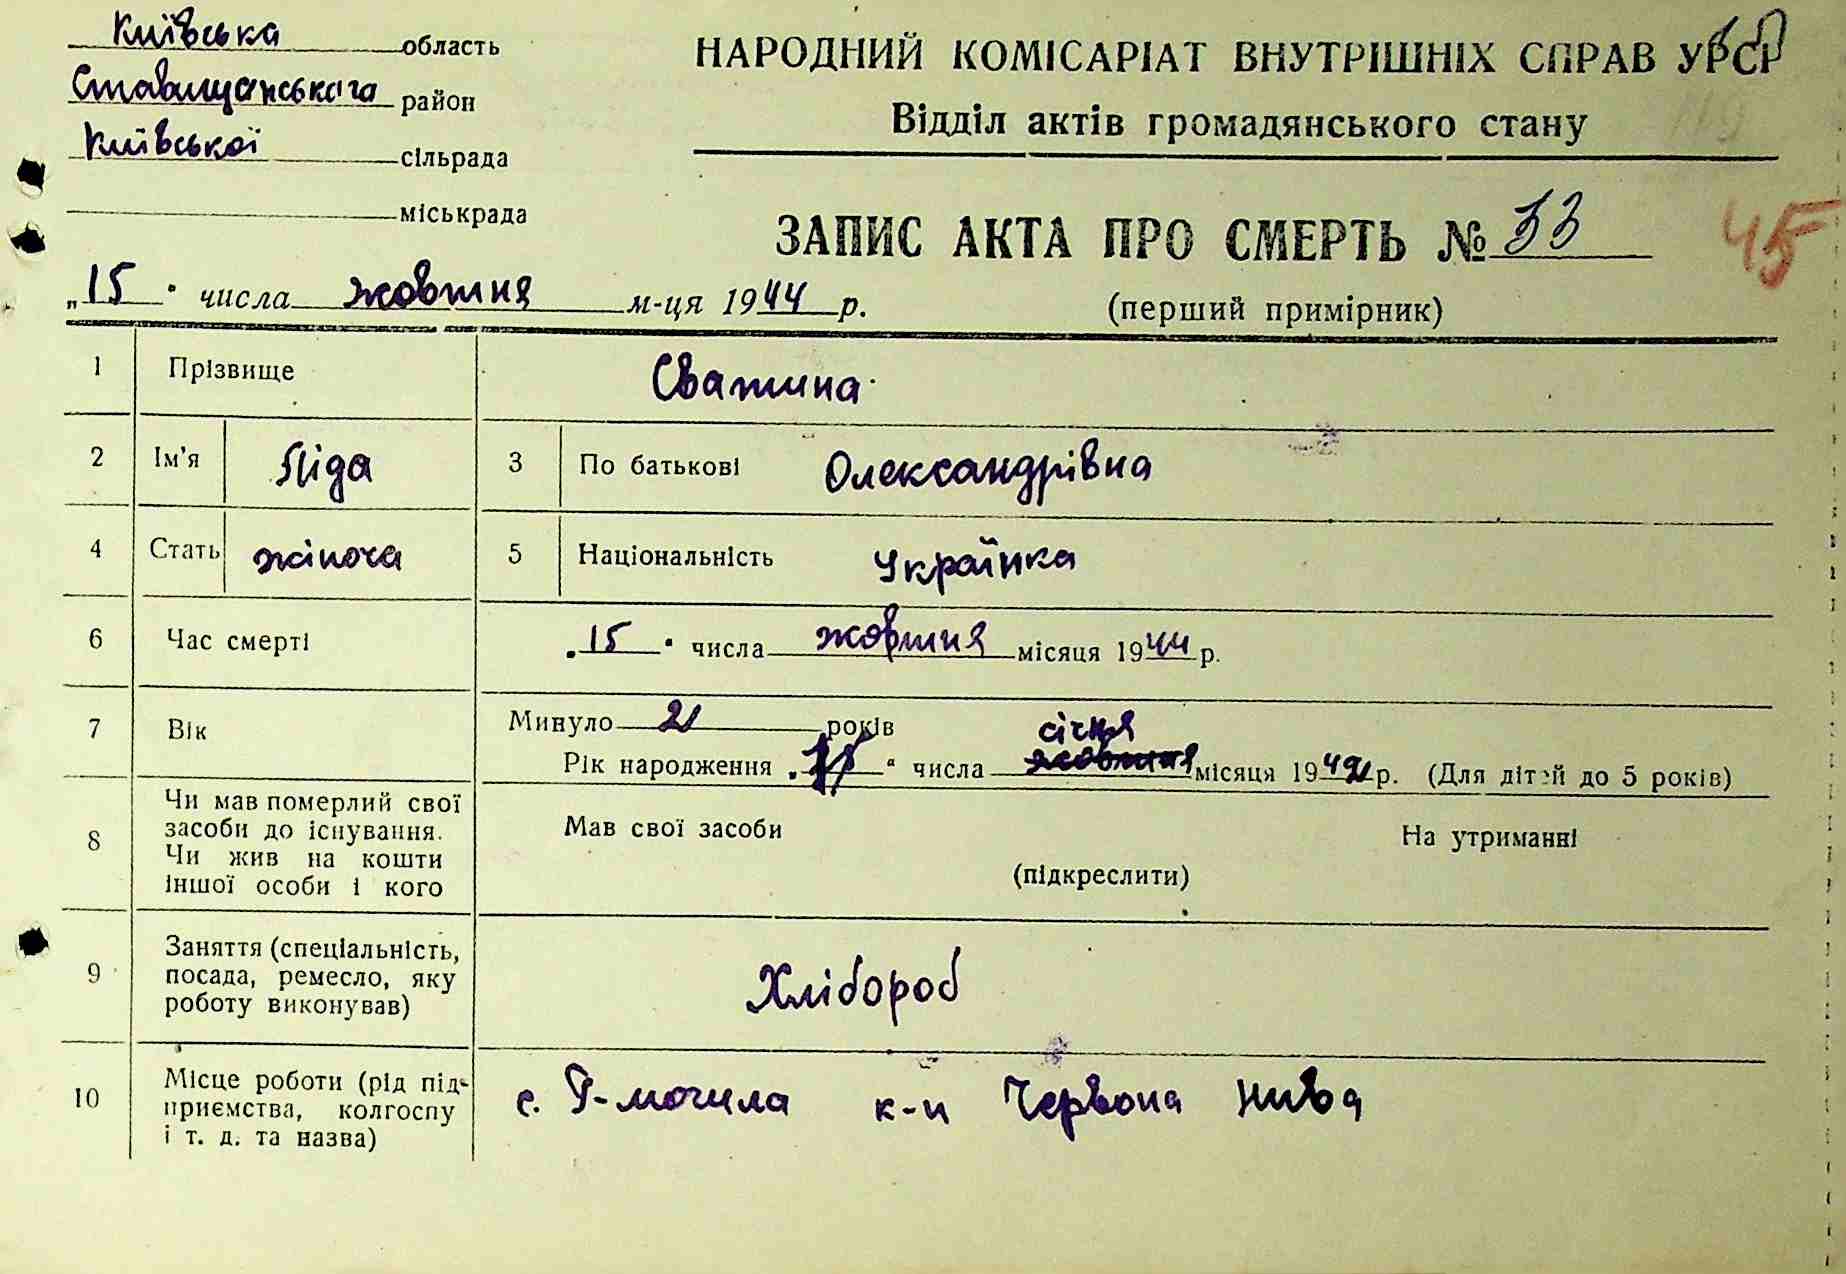 Київська область
Ставищанського район
Київської сільрада
міськрада
НАРОДНИЙ КОМІСАРІАТ ВНУТРІШНІХ СПРАВ УРСР
Відділ актів громадянського стану
ЗАПИС АКТА ПРО СМЕРТЬ № 33
45
„15" числа жовтня м-ця 1944 р.
(перший примірник)
1 Прізвище Сватина
2 Ім'я Ліда 3 По батькові Олександрівна
4 Стать жіноча 5 Національність Українка
6 Час смерті „15" числа жовтня місяця 1944 р.
7 Вік Минуло 21 років
січня
Рік народження " числа жовтня місяця 19 р. (Для дітей до 5 років)
8 Чи мав померлий свої засоби до існування. Чи жив на кошти іншої особи і кого
Мав свої засоби На утриманні
(підкреслити)
9 Заняття (спеціальність, посада, ремесло, яку роботу виконував) Хлібороб
10 Місце роботи (рід підприємства, колгоспу і т. д. та назва) с. -могила к-п Червона Нива